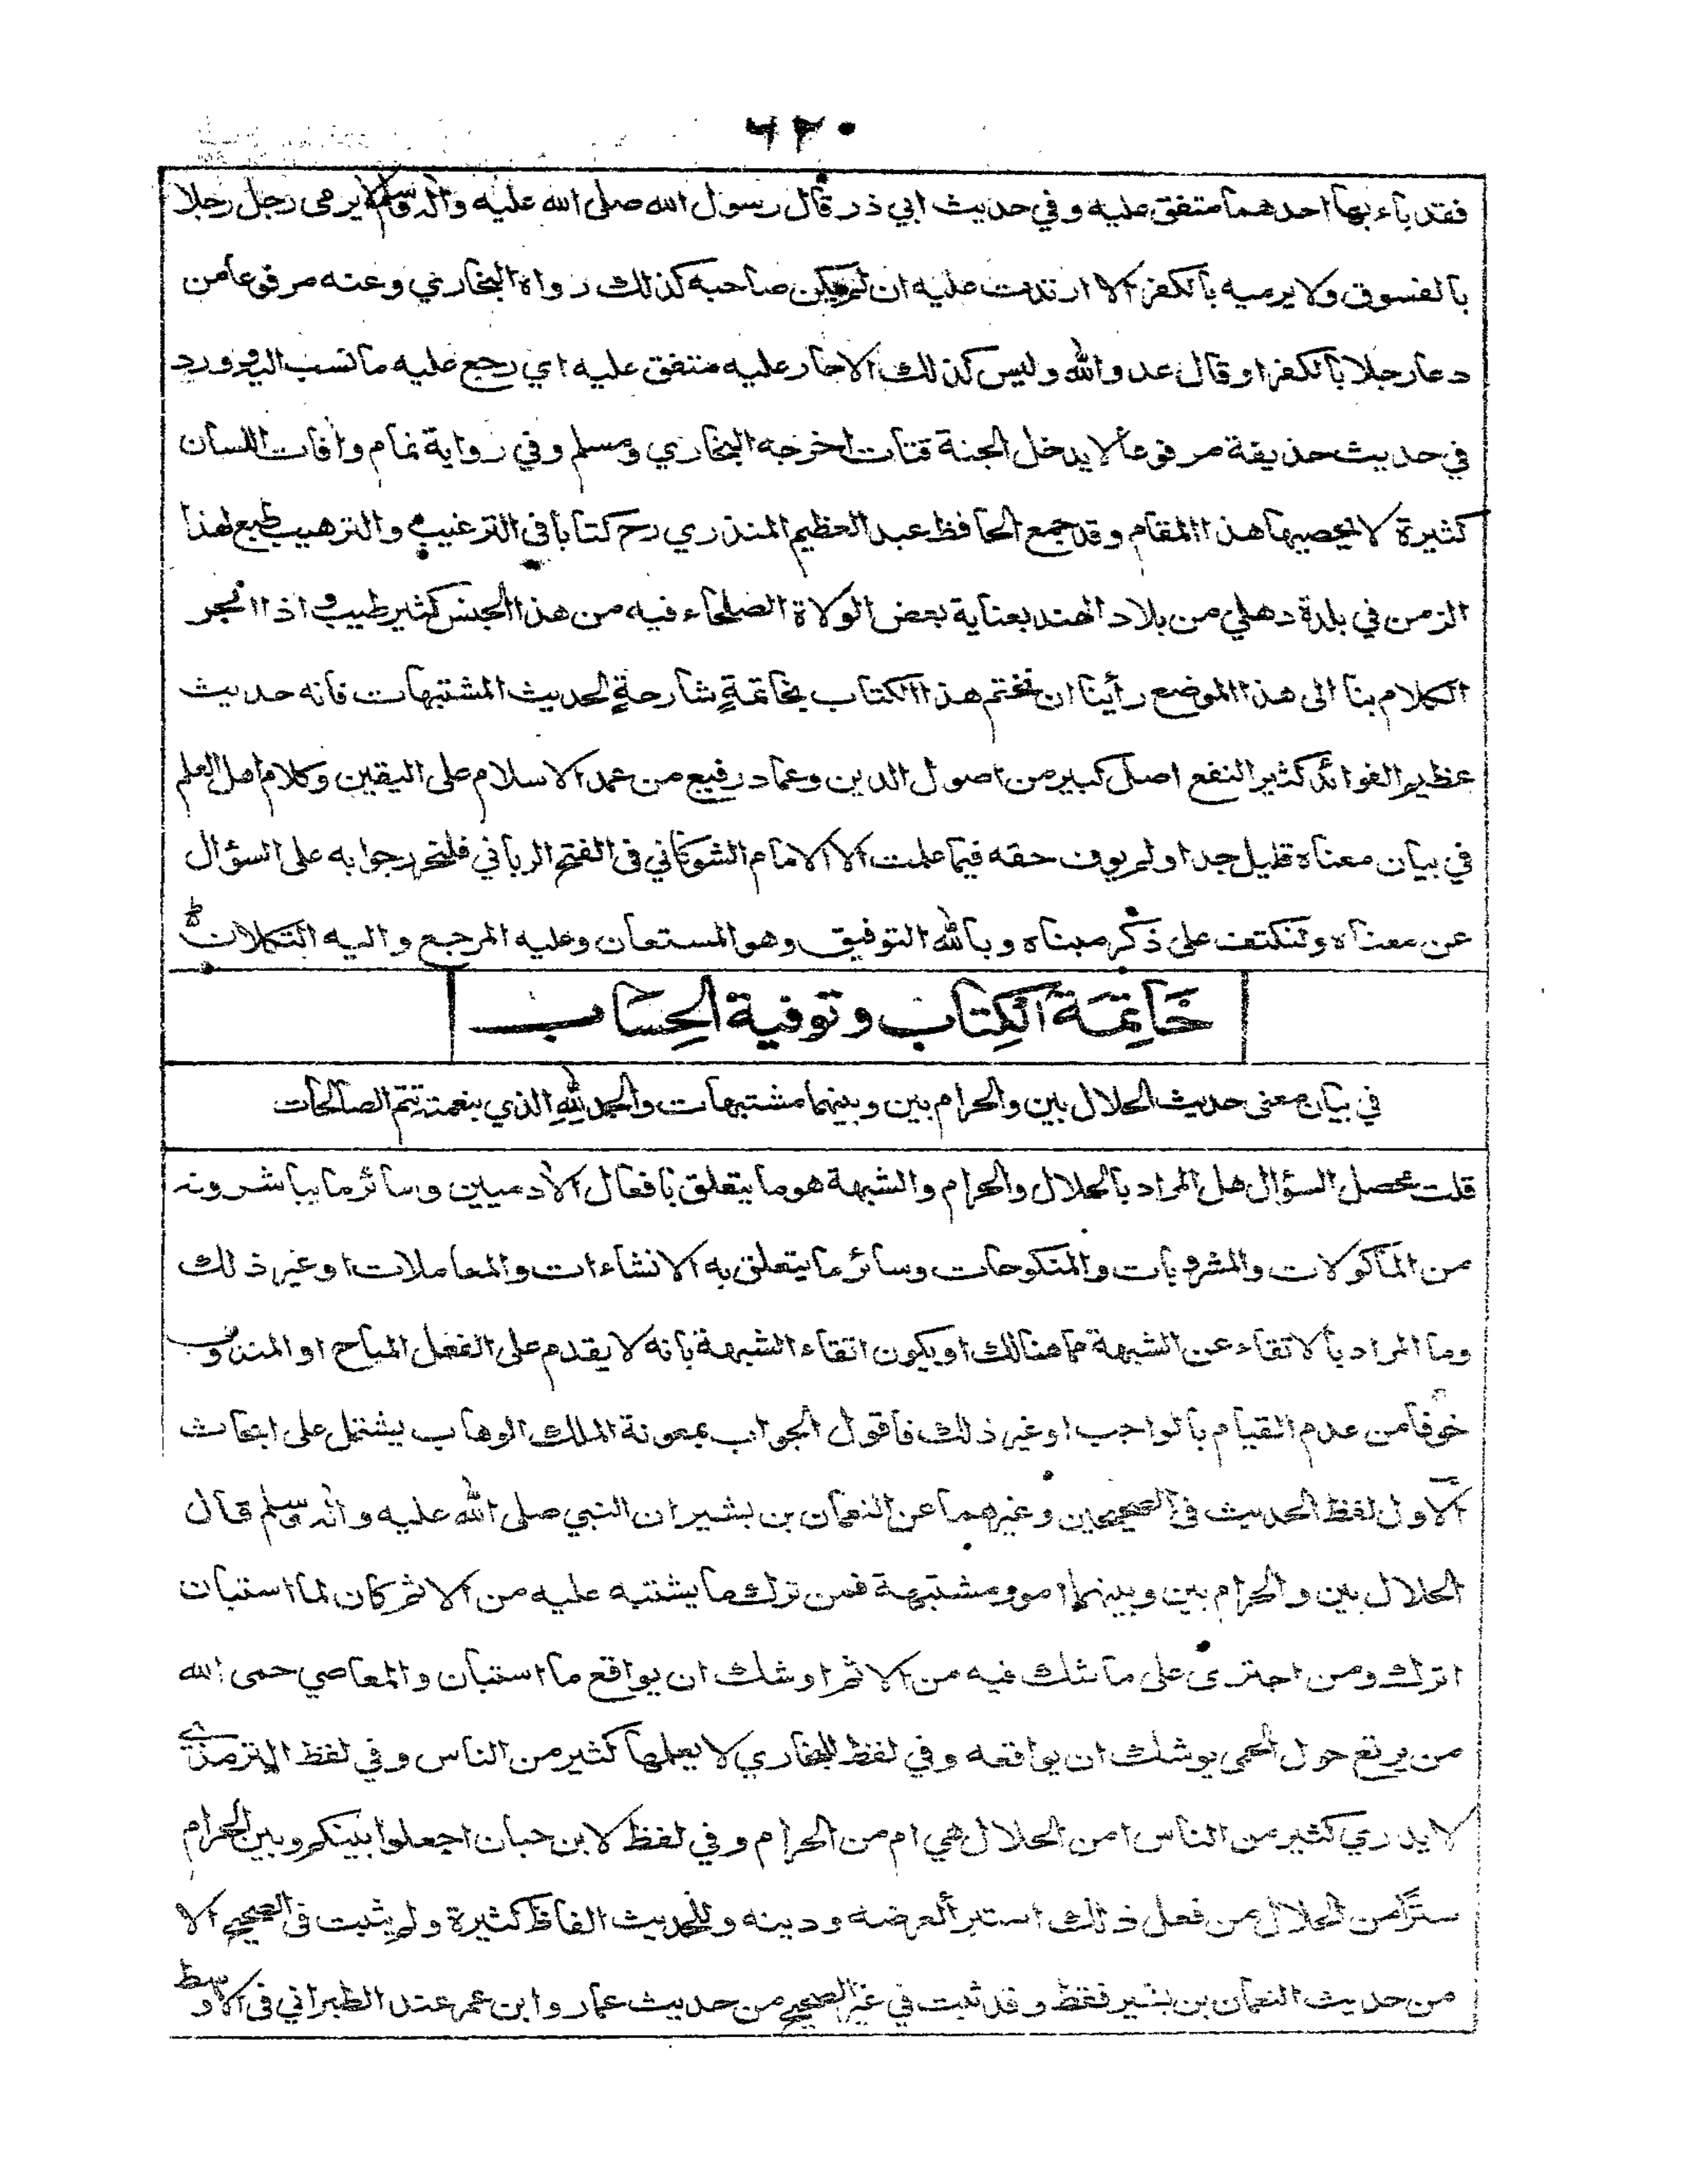 ٤٢٠
فقد باء بها احدهما متفق عليه وفي حديث ابي ذر قال رسول الله صلى الله عليه واله وسلم لا يرمى رجل رجلا
بالفسوق ولا يرميه بالكفر الا ارتدت عليه ان لم يكن صاحبه كذلك رواه البخاري وعنه مرفوعا من
دعا رجلا بالكفر او قال عدو الله وليس كذلك الا حار عليه متفق عليه اي رجع عليه ما نسب اليه وورد
في حديث حذيفة مرفوعا لا يدخل الجنة قتات اخرجه البخاري ومسلم وفي رواية نمام وافات اللسان
كثيرة لا يحصيها هذا المقام وقد جمع الحافظ عبد العظيم المنذري رح كتابا في الترغيب والترهيب طبع لهذا
الزمن في بلدة دهلي من بلاد الهند بعناية بعض الولاة الصلحاء فيه من هذا الجنس كثير طيب واذا انجر
الكلام بنا الى هذا الموضع رأينا ان نختم هذا الكتاب بخاتمةٍ شارحةٍ لحديث المشتبهات فانه حديث
عظيم الفوائد كثير النفع اصل كبير من اصول الدين وعماد رفيع من عمد الاسلام على اليقين وكلام اهل العلم
في بيان معناه قليل جدا ولم يوف حقه فيما علمت الا الامام الشوكاني في الفتح الرباني فلنحرر جوابه على السؤال
عن معناه ولنكتف على ذكر مبناه وبالله التوفيق وهو المستعان وعليه المرجع واليه التكلان
خَاتِمَة الكِتَاب وتوفية الحِسَاب
في بيان معنى حديث الحلال بين والحرام بين وبينهما مشتبهات والحمد لله الذي بنعمته تتم الصالحات
قلت محصل السؤال هل المراد بالحلال والحرام والشبهة هو ما يتعلق بافعال الادميين وسائر ما يباشرونه
من المأكولات والمشروبات والمنكوحات وسائر ما يتعلق به الانشاءات والمعاملات او غير ذلك
وما المراد بالاتقاء عن الشبهة مما هنالك او يكون اتقاء الشبهة بانه لا يقدم على الفعل المباح او المندوب
خوفا من عدم القيام بالواجب او غير ذلك فاقول الجواب بمعونة الملك الوهاب يشتمل على ابحاث
الاول لفظ الحديث في الصحيحين وغيرهما عن النعمان بن بشير ان النبي صلى الله عليه واله وسلم قال
الحلال بين والحرام بين وبينهما امور مشتبهة فمن ترك ما يشتبه عليه من الاثم كان لما استبان
اترك ومن اجترى على ما شك فيه من الاثم اوشك ان يواقع ما استبان والمعاصي حمى الله
من يرتع حول الحمى يوشك ان يواقعه وفي لفظ للبخاري لا يعلمها كثير من الناس وفي لفظ الترمذي
لا يدري كثير من الناس امن الحلال هي ام من الحرام وفي لفظ لابن حبان اجعلوا بينكم وبين الحرام
سترا من الحلال من فعل ذلك استبرأ لعرضه ودينه وللحديث الفاظ كثيرة ولم يثبت في الصحيح الا
من حديث النعمان بن بشير فقط وقد ثبت في غير الصحيح من حديث عمار وابن عمر عند الطبراني في الاوسط